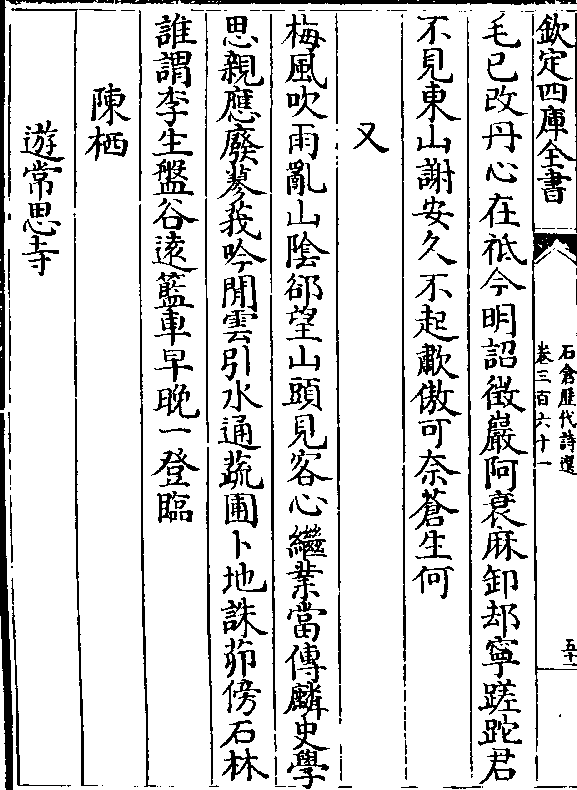 欽定四庫全書
石倉歷代詩選
卷三百六十一
五十
毛已改丹心在祇今明詔徴巖阿衰麻卸却寧蹉跎君
不見東山謝安久不起歗傲可奈蒼生何
又
梅風吹雨亂山陰郤望山頭見客心繼業當傳麟史學
思親應廢蓼莪吟閒雲引水通蔬圃卜地誅茆傍石林
誰謂李生盤谷遠籃車早晩一登臨
陳栖
遊常思寺